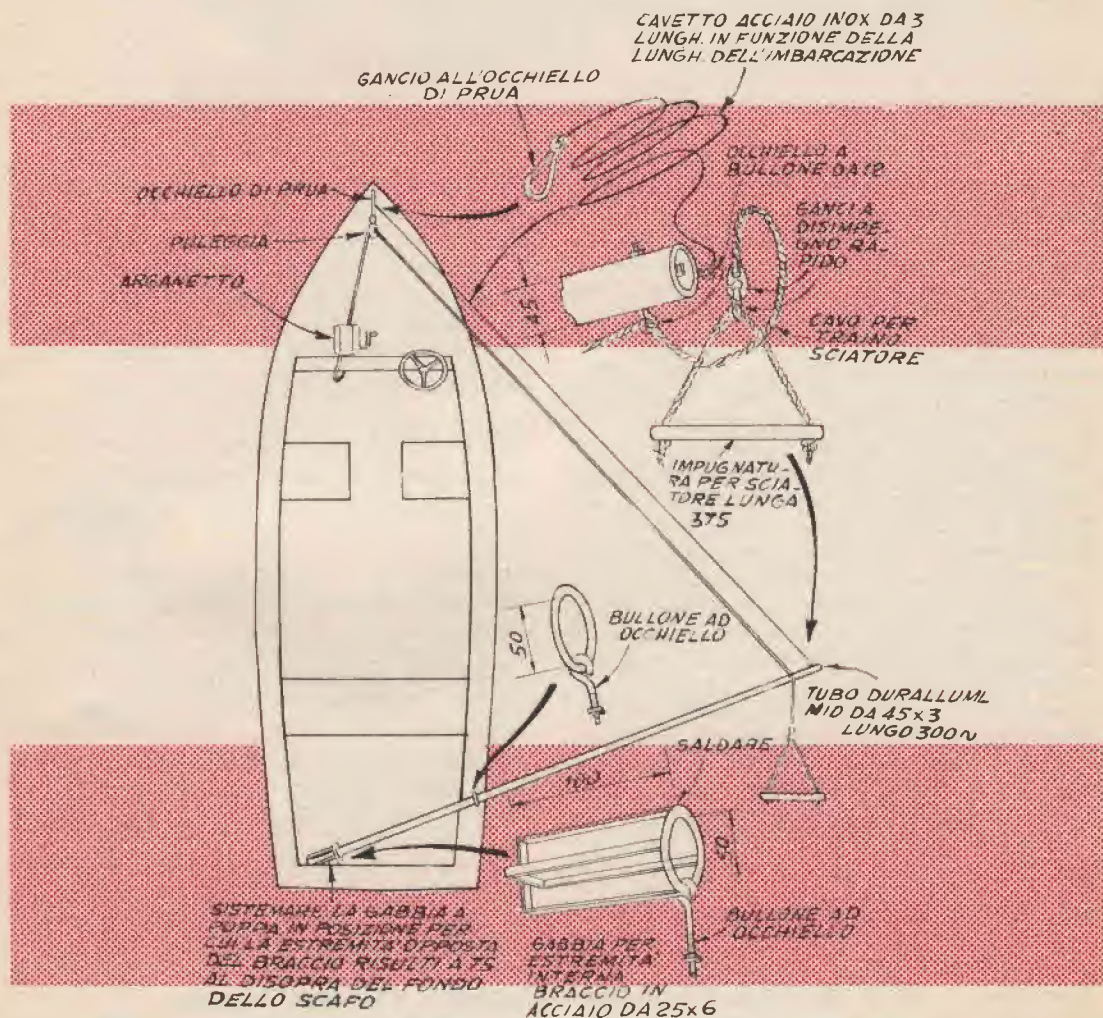 CAVETTO ACCIAIO INOX DA 3
LUNGH. IN FUNZIONE DELLA
LUNGH. DELL'IMBARCAZIONE
GANCIO ALL'OCCHIELLO
DI PRUA
OCCHIELLO A
BULLONE DA 12
OCCHIELLO DI PRUA
PULEGGIA
ARGANETTO
GANCI A
DISIMPE-
GNO RA-
PIDO
45
CAVO PER
TRAINO
SCIATORE
IMPUGNATU-
RA PER SCIA-
TORE LUNGA
375
50
BULLONE AD
OCCHIELLO
TUBO DURALLUMI-
NIO DA 45x3
LUNGO 300~
SALDARE
100
50
SISTEMARE LA GABBIA A
POPPA IN POSIZIONE PER
CUI LA ESTREMITA' OPPOSTA
DEL BRACCIO RISULTI A 75
AL DISOPRA DEL FONDO
DELLO SCAFO
GABBIA PER
ESTREMITA'
INTERNA
BRACCIO IN
ACCIAIO DA 25x6
BULLONE AD
OCCHIELLO